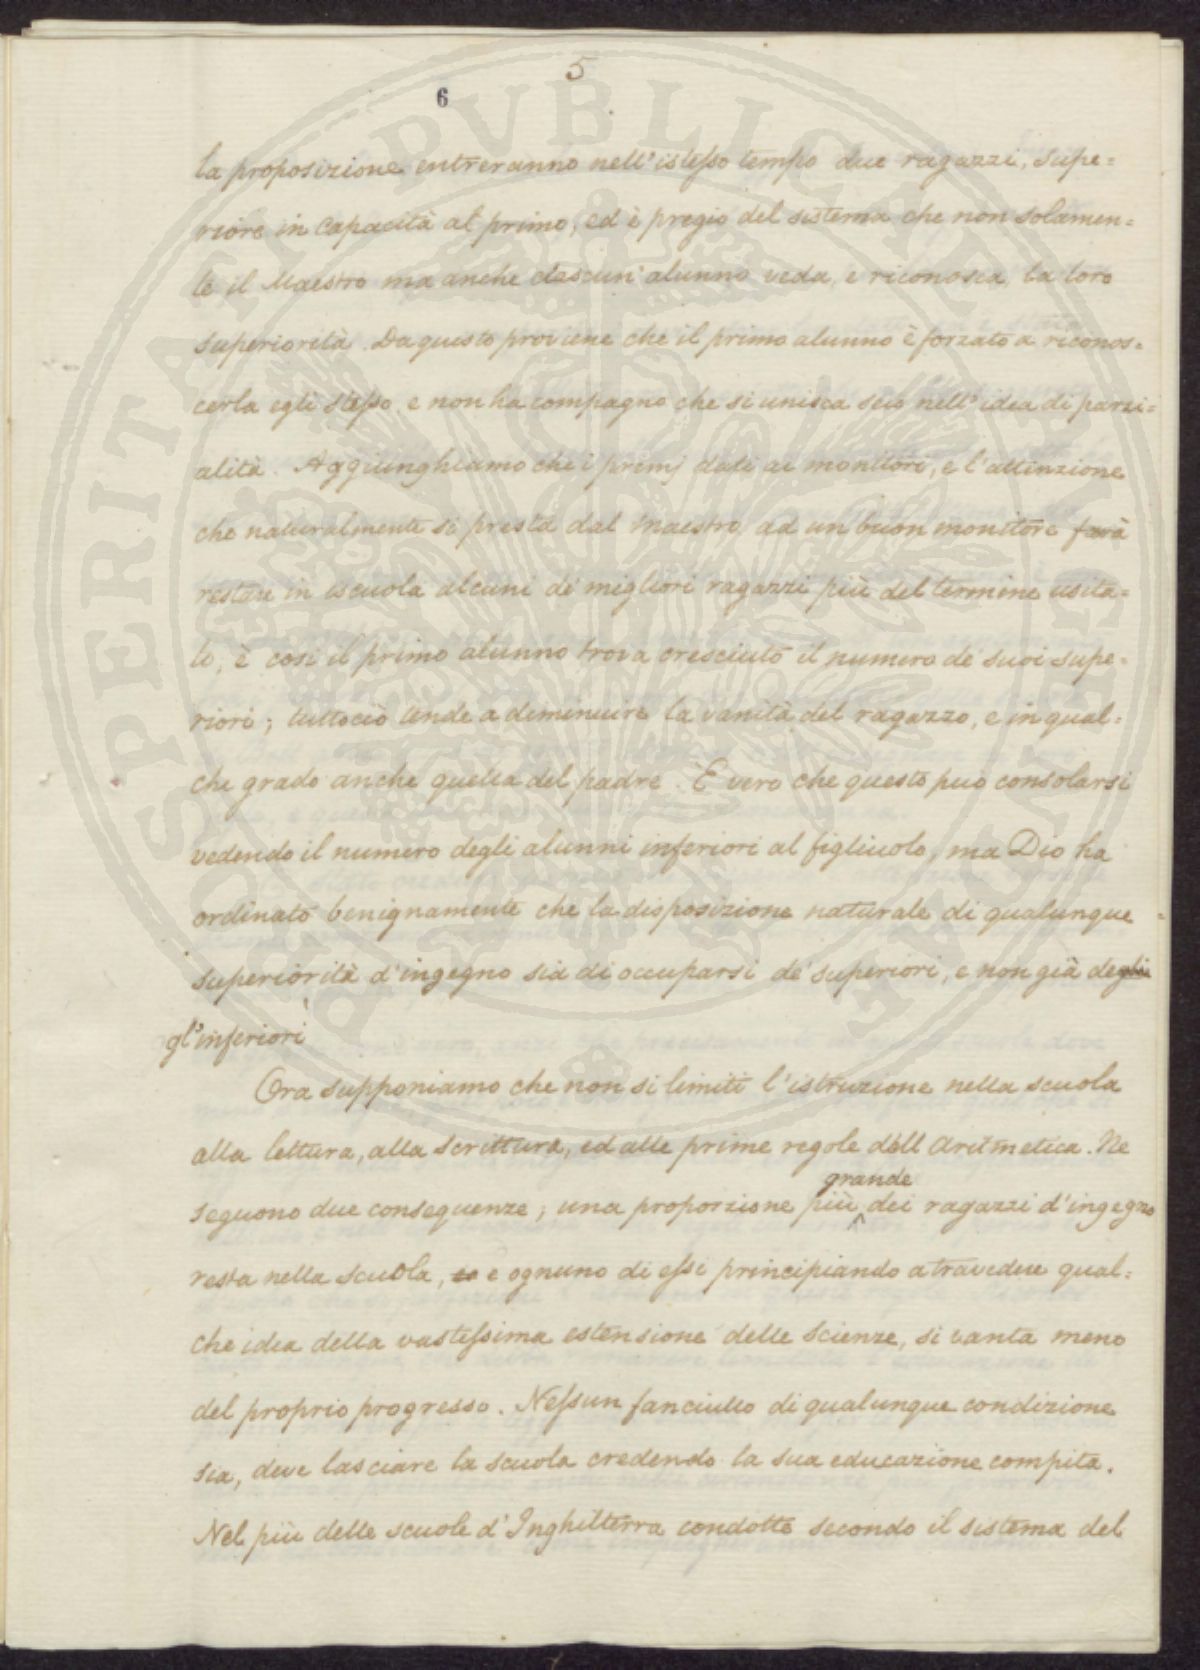 5
6
la proposizione entreranno nell'istesso tempo due ragazzi, supe=
riore in capacità al primo, ed è pregio del sistema che non solamen=
te il Maestro ma anche ciascun'alunno veda, e riconosca, la loro
superiorità. Da questo proviene che il primo alunno è forzato a riconos=
cerla egli stesso, e non ha compagno che si unisca seco nell'idea di parzi=
alità. Aggiunghiamo che i premj dati ai monitori, e l'attenzione
che naturalmente si presta dal maestro ad un buon monitore farà
restare in iscuola alcuni de' migliori ragazzi più del termine usita=
to, è così il primo alunno trova cresciuto il numero de' suoi supe=
riori; tuttociò tende a diminuire la vanità del ragazzo, e in qual=
che grado anche quella del padre. È vero che questo può consolarsi
vedendo il numero degli alunni inferiori al figliuolo, ma Dio ha
ordinato benignamente che la disposizione naturale di qualunque
superiorità d'ingegno sia di occuparsi de' superiori, e non già degli
gl'inferiori
Ora supponiamo che non si limiti l'istruzione nella scuola
alla lettura, alla scrittura, ed alle prime regole dell Aritmetica. Ne
grande
seguono due conseguenze; una proporzione più dei ragazzi d'ingegno
resta nella scuola, e ognuno di essi principiando a travedere qual=
che idea della vastessima estensione delle scienze, si vanta meno
del proprio progresso. Nessun fanciullo di qualunque condizione
sia, deve lasciare la scuola credendo la sua educazione compita.
Nel più delle scuole d'Inghilterra condotte secondo il sistema del
PROSPERITATI PVBLICAE AVGENDAE